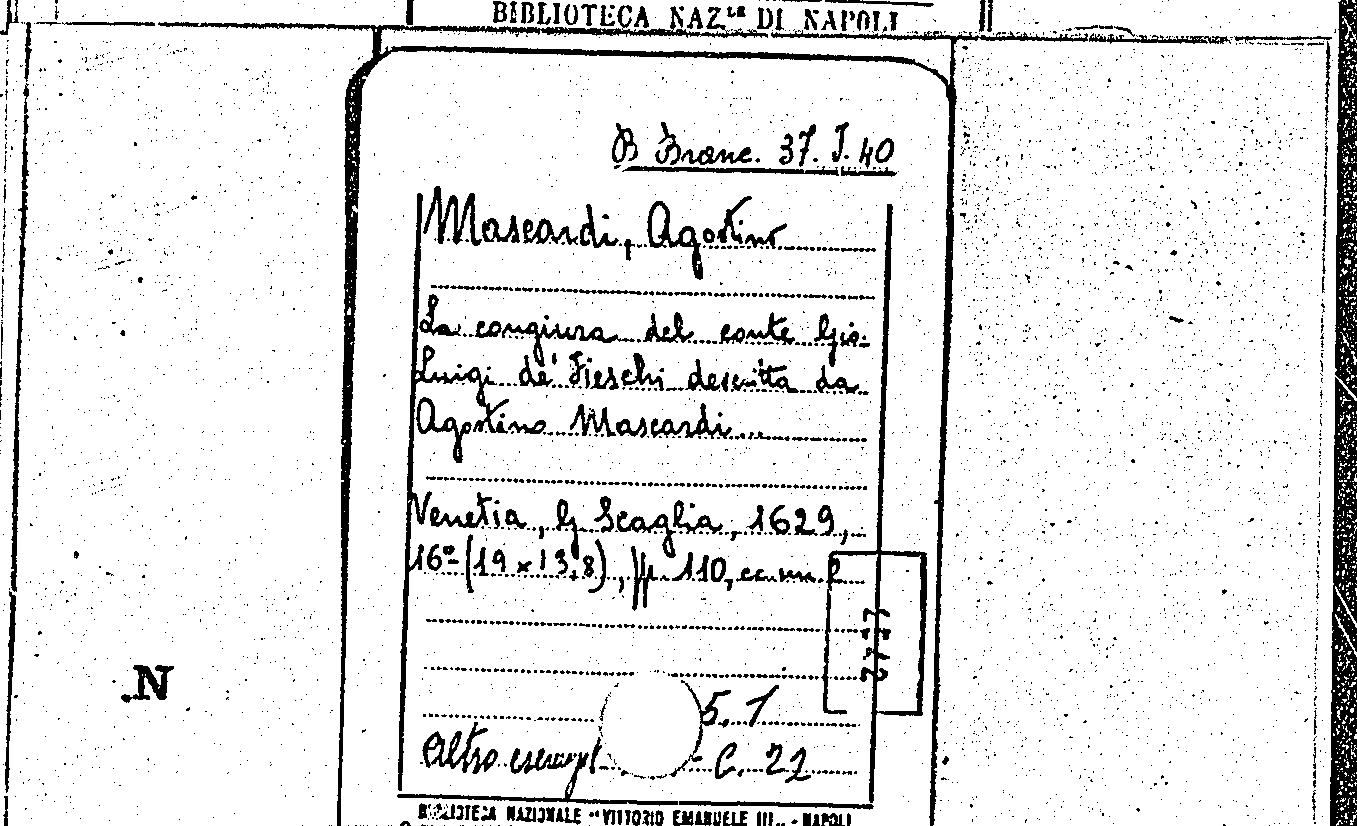 BIBLIOTECA NAZ.LE DI NAPOLI
B Branc. 37. I. 40
Mascardi, Agostino
La congiura del conte Gio:
Luigi de' Fieschi descritta da
Agostino Mascardi...
Venetia, G Scaglia, 1629,
16º (19 x 13,8), pp. 110, cc. nn. 2
.N
5. 1
Altro esempl C. 22
BIBLIOTECA NAZIONALE "VITTORIO EMANUELE III" - NAPOLI